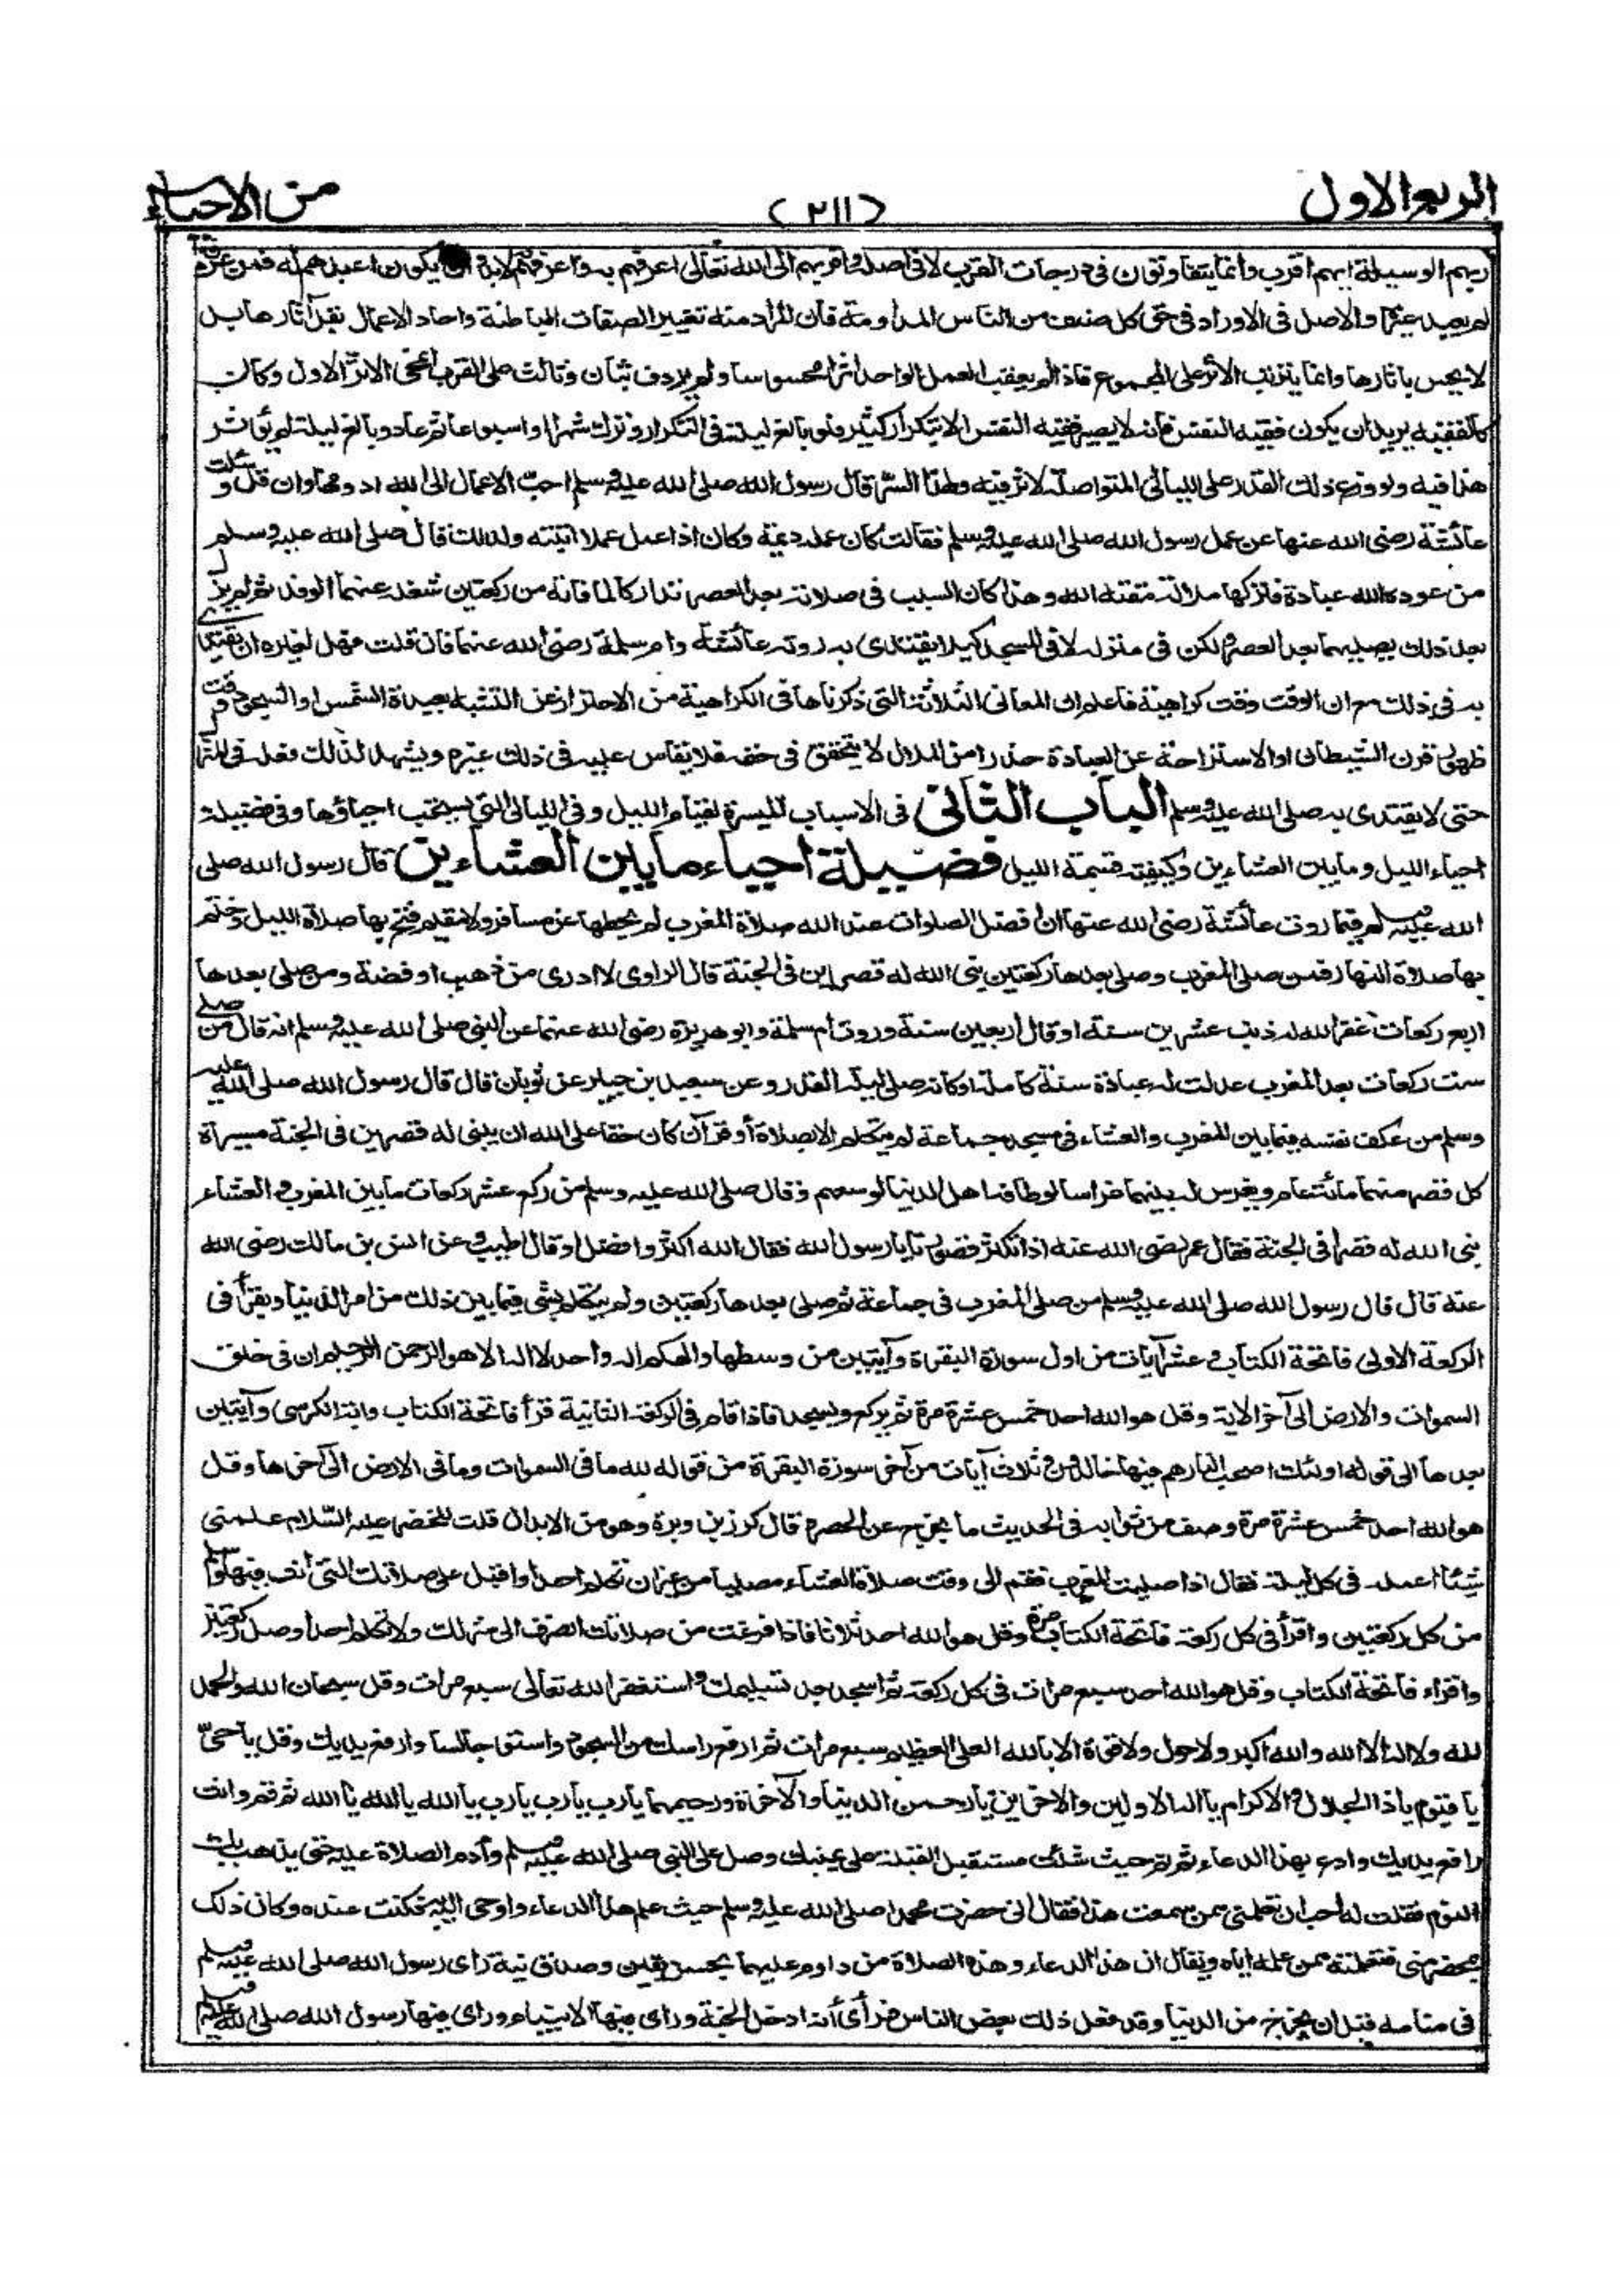 الربع الاول
(٢١١)
من الاحياء
ربهم الوسيلة ايهم اقرب وانما يتفاوتون في درجات القرب لا في اصله واقربهم الى الله تعالى اعرفهم به واعرفهم لابد ان يكون اعبدهم له فمن عرفه
لم يعبد غيره والاصل في الاوراد في حق كل صنف من الناس المداومة فان المراد منه تغيير الصفات الباطنة واحاد الاعمال يقل آثارها بل
لا يحس باثارها وانما يترتب الاثر على المجموع فاذا لم يعقب العمل الواحد اثرا محسوسا ولم يردف بثان وثالث على القرب انمحى الاثر الاول وكان
كالفقيه يريد ان يكون فقيه النفس فانه لا يصير فقيه النفس الا بتكرار كثير فلو بالغ ليلة في التكرار وترك شهرا او اسبوعا ثم عاد وبالغ ليلة لم يؤثر
هذا فيه ولو وزع ذلك القدر على الليالي المتواصلة لاثر فيه ولهذا السر قال رسول الله صلى الله عليه وسلم احب الاعمال الى الله ادومها وان قل وسئلت
عائشة رضى الله عنها عن عمل رسول الله صلى الله عليه وسلم فقالت كان عمله ديمة وكان اذا عمل عملا اثبته ولذلك قال صلى الله عليه وسلم
من عوده الله عبادة فتركها ملالة مقته الله وهذا كان السبب في صلاته بعد العصر تداركا لما فاته من ركعتين شغله عنهما الوفد ثم لم يزل
بعد ذلك يصليهما بعد العصر ولكن في منزله لا في المسجد كيلا يقتدى به روته عائشة وام سلمة رضى الله عنهما فان قلت فهل لغيره ان يقتدى
به في ذلك مع ان الوقت وقت كراهية فاعلم ان المعاني الثلاثة التي ذكرناها في الكراهية من الاحتراز عن التشبه بعبدة الشمس او السجود وقت
ظهور قرن الشيطان او الاستراحة عن العبادة حذرا من الملال لا يتحقق في حقه فلا يقاس عليه في ذلك غيره ويشهد لذلك فعله في المنزل
حتى لا يقتدى به صلى الله عليه وسلم الباب الثانى فى الاسباب الميسرة لقيام الليل وفي الليالي التي يستحب احياؤها وفي فضيلة
احياء الليل وما بين العشاءين وكيفية قسمة الليل فضيلة احياء ما بين العشاءين قال رسول الله صلى
الله عليه وسلم فيما روت عائشة رضى الله عنها ان افضل الصلوات عند الله صلاة المغرب لم يحطها عن مسافر ولا مقيم فتح بها صلاة الليل وختم
بها صلاة النهار فمن صلى المغرب وصلى بعدها ركعتين بنى الله له قصرين في الجنة قال الراوى لا ادرى من ذهب او فضة ومن صلى بعدها
اربع ركعات غفر الله له ذنب عشرين سنة او قال اربعين سنة وروت ام سلمة وابو هريرة رضى الله عنهما عن النبى صلى الله عليه وسلم انه قال من صلى
ست ركعات بعد المغرب عدلت له عبادة سنة كاملة او كانه صلى ليلة القدر وعن سعيد بن جبير عن ثوبان قال قال رسول الله صلى الله عليه
وسلم من عكف نفسه فيما بين المغرب والعشاء في مسجد جماعة لم يتكلم الا بصلاة أو قرآن كان حقا على الله ان يبنى له قصرين في الجنة مسيرة
كل قصر منهما مائة عام ويغرس له بينهما غراسا لو طافه اهل الدنيا لوسعهم وقال صلى الله عليه وسلم من ركع عشر ركعات ما بين المغرب والعشاء
بنى الله له قصرا في الجنة فقال عمر رضى الله عنه اذا تكثر قصورنا يا رسول الله فقال الله اكثر وافضل او قال اطيب وعن انس بن مالك رضى الله
عنه قال قال رسول الله صلى الله عليه وسلم من صلى المغرب في جماعة ثم صلى بعدها ركعتين ولم يتكلم بشى فيما بين ذلك من امر الدنيا ويقرأ فى
الركعة الاولى فاتحة الكتاب وعشر آيات من اول سورة البقرة وآيتين من وسطها والهكم اله واحد لا اله الا هو الرحمن الرحيم ان في خلق
السموات والارض الى آخر الاية وقل هو الله احد خمس عشرة مرة ثم يركع ويسجد فاذا قام في الركعة الثانية قرأ فاتحة الكتاب واية الكرسى وآيتين
بعدها الى قوله اولئك اصحب النار هم فيها خالدون وثلاث آيات من آخر سورة البقرة من قوله لله ما في السموات وما في الارض الى آخرها وقل
هو الله احد خمس عشرة مرة وصف من ثوابه في الحديث ما يخرج عن الحصر وقال كرز بن وبرة وهو من الابدال قلت للخضر عليه السلام علمنى
شيئا اعمله في كل ليلة فقال اذا صليت المغرب فقم الى وقت صلاة العشاء مصليا من غير ان تكلم احدا واقبل على صلاتك التى أنت فيها وسلم
من كل ركعتين واقرأ في كل ركعة فاتحة الكتاب مرة وقل هو الله احد ثلاثا فاذا فرغت من صلاتك انصرف الى منزلك ولا تكلم احدا وصل ركعتين
واقراء فاتحة الكتاب وقل هو الله احد سبع مرات في كل ركعة ثم اسجد بعد تسليمك واستغفر الله تعالى سبع مرات وقل سبحان الله والحمد
لله ولا اله الا الله والله اكبر ولا حول ولا قوة الا بالله العلى العظيم سبع مرات ثم ارفع راسك من السجود واستو جالسا وارفع يديك وقل يا حىّ
يا قيوم يا ذا الجلال والاكرام يا اله الاولين والاخرين يا رحمن الدنيا والآخرة ورحيمهما يا رب يا رب يا رب يا الله يا الله يا الله ثم قم وانت
رافع يديك وادع بهذا الدعاء ثم نم حيث شئت مستقبل القبلة على يمينك وصل على النبى صلى الله عليه وسلم وأدم الصلاة عليه حتى يذهب بك
النوم فقلت له احب ان تعلمنى ممن سمعت هذا فقال انى حضرت محمدا صلى الله عليه وسلم حيث علم هذا الدعاء واوحى اليه فكنت عنده وكان ذلك
بمحضر منى فتعلمته ممن علمه اياه ويقال ان هذا الدعاء وهذه الصلاة من داوم عليهما بحسن يقين وصدق نية راى رسول الله صلى الله عليه وسلم
في منامه قبل ان يخرج من الدنيا وقد فعل ذلك بعض الناس فرأى أنه ادخل الجنة وراى فيها الانبياء وراى فيها رسول الله صلى الله عليه وسلم